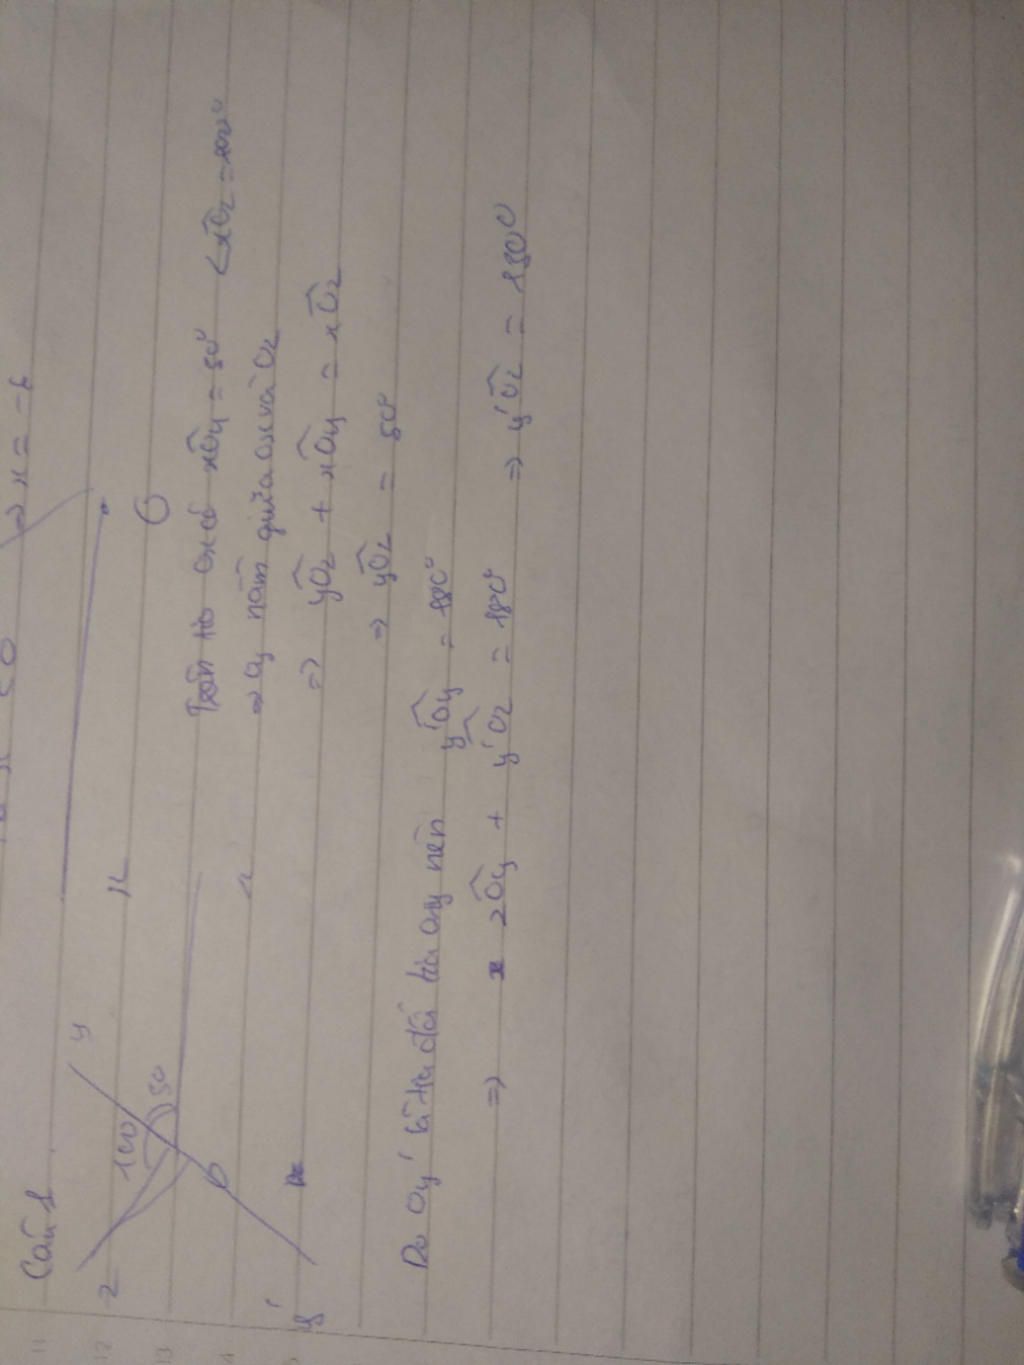 => x = -6
Câu 1
z
y
100
50
x
O
y'
x
O
Trên tia Ox có xOy = 50° < xOz = 100°
=> Oy nằm giữa Ox và Oz
=> yOz + xOy = xOz
=> yOz = 50°
Do Oy' là tia đối tia Oy nên y'Oy = 180°
=> zOy + y'Oz = 180° => y'Oz = 130°
11
12
13